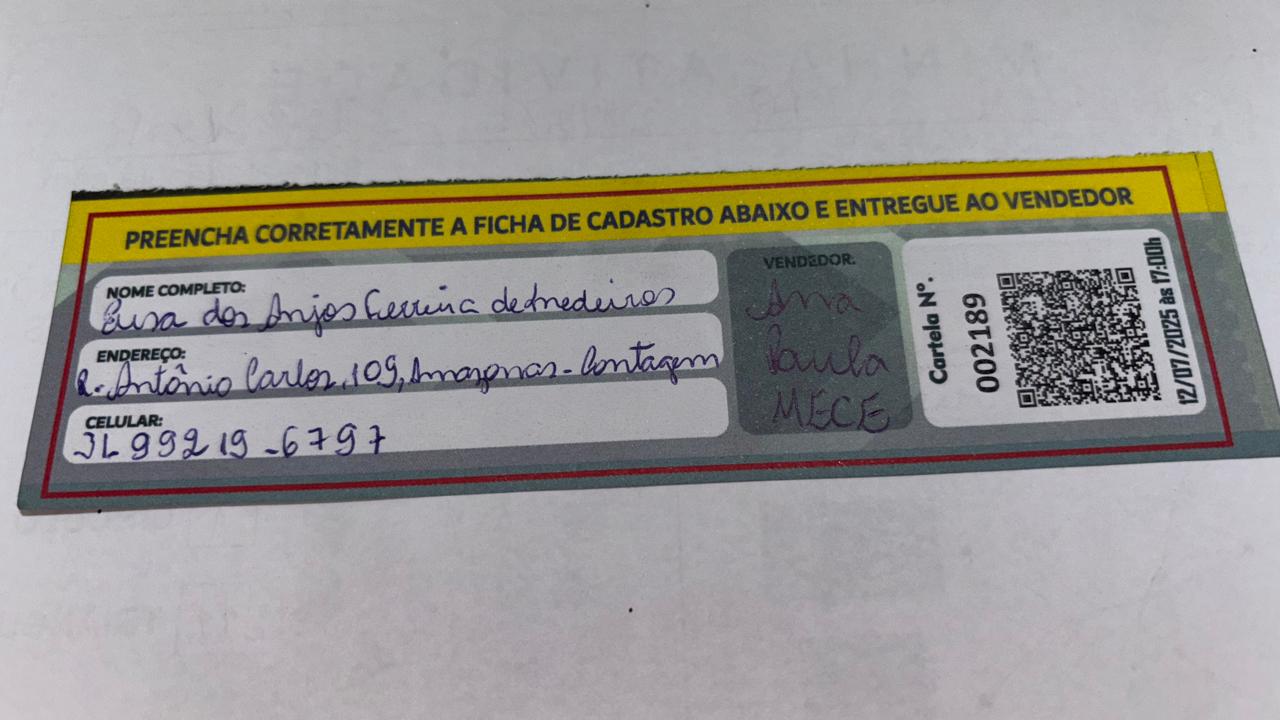 PREENCHA CORRETAMENTE A FICHA DE CADASTRO ABAIXO E ENTREGUE AO VENDEDOR
NOME COMPLETO:
dos Anjos Ferreira de medeiros
ENDEREÇO:
R. Antônio Carlos, 109, Amazonas - Contagem
CELULAR:
3L 99219-6797
VENDEDOR:
Ana
Paula
MECE
Cartela Nº.
002189
12/07/2025 às 17:00h